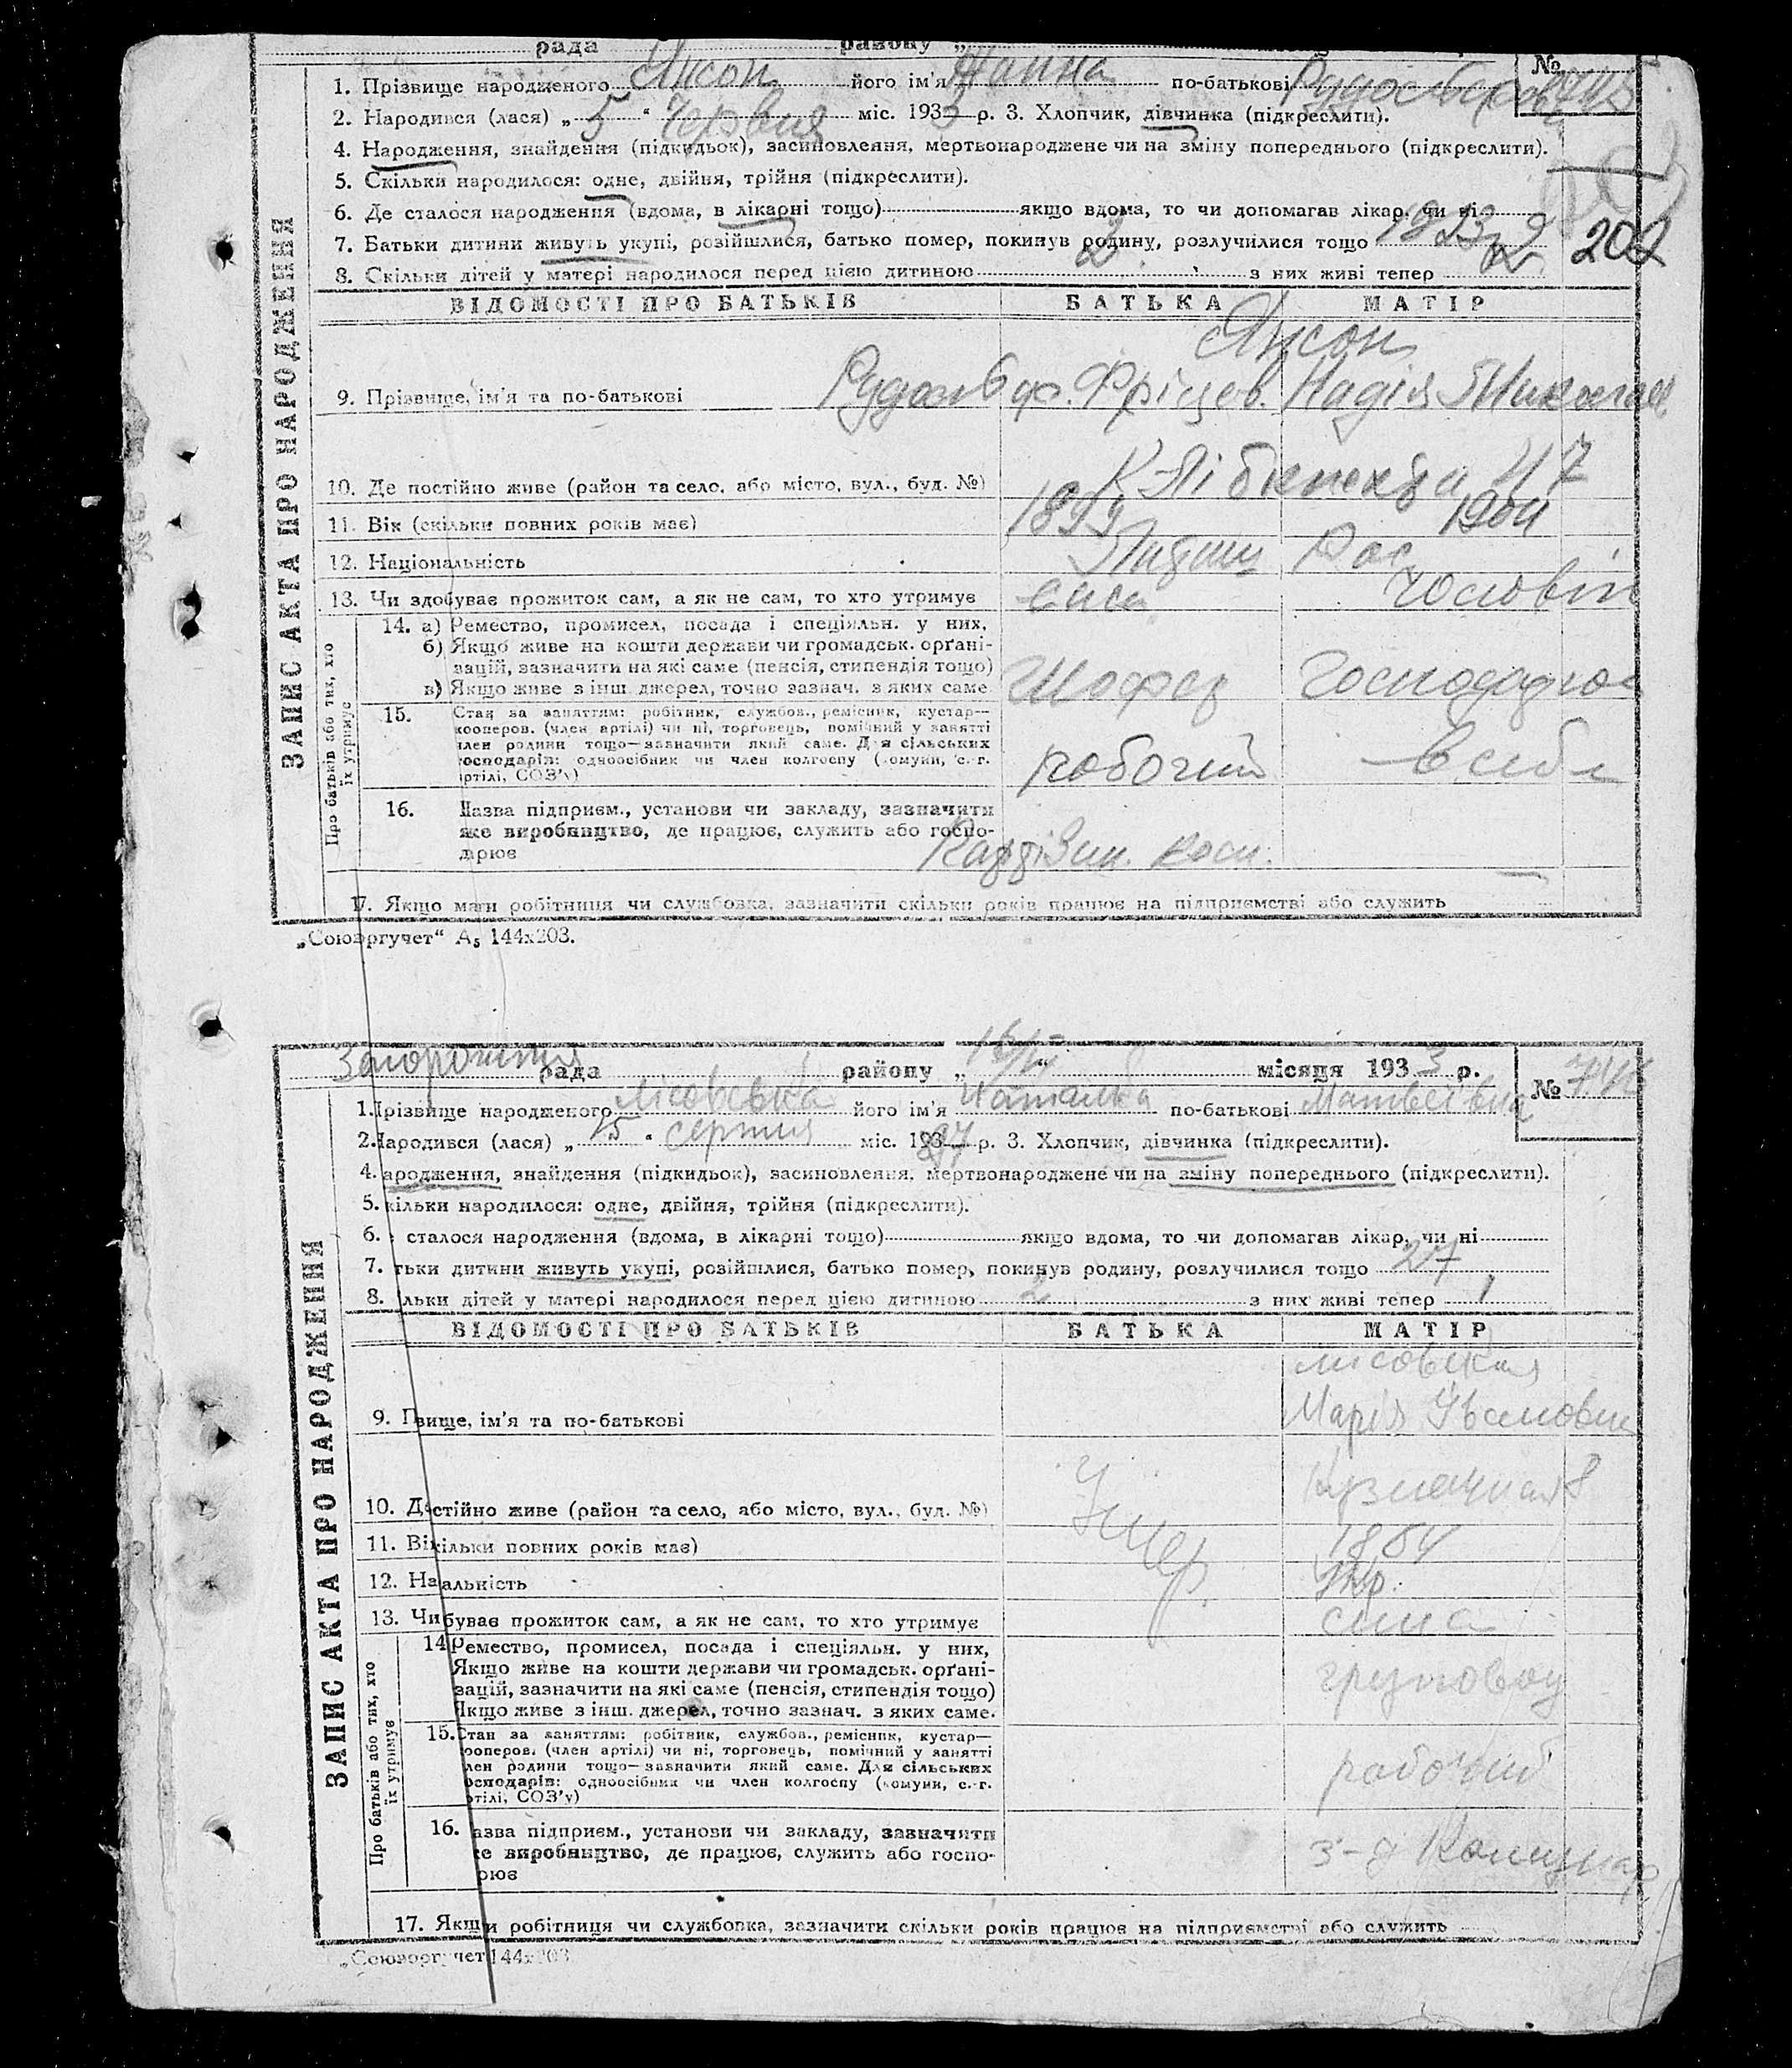 рада району „
№
1. Прізвище народженого Янсон його ім'я Жанна по-батькові Рудольфовна
2. Народився (лася) „ 5 “ червня міс. 1933 р. 3. Хлопчик, дівчинка (підкреслити).
4. Народження, знайдення (підкидьок), засиновлення, мертвонароджене чи на зміну попереднього (підкреслити).
5. Скільки народилося: одне, двійня, трійня (підкреслити).
6. Де сталося народження (вдома, в лікарні тощо) якщо вдома, то чи допомагав лікар, чи ні
7. Батьки дитини живуть укупі, розійшлися, батько помер, покинув родину, розлучилися тощо 1923
202
8. Скільки дітей у матері народилося перед цією дитиною 2 з них живі тепер 2
ЗАПИС АКТА ПРО НАРОДЖЕННЯ
ВІДОМОСТІ ПРО БАТЬКІВ БАТЬКА МАТІР
Янсон
9. Прізвище, ім'я та по-батькові Рудольф. Фріцев. Надія Николаев
10. Де постійно живе (район та село, або місто, вул., буд. №) К Лібкнехта 47
11. Вік (скільки повних років має) 1899 1904
12. Національність Латиш Рос
13. Чи здобуває прожиток сам, а як не сам, то хто утримує сам чоловік
Про батьків або тих, хто їх утримує
14. а) Ремество, промисел, посада і спеціяльн. у них,
б) Якщо живе на кошти держави чи громадськ. орґані-
зацій, зазначити на які саме (пенсія, стипендія тощо)
в) Якщо живе з інш. джерел, точно зазнач. з яких саме.
Шофер
15. Стан за заняттям: робітник, службов., ремісник, кустар—
кооперов. (член артілі) чи ні, торговець, помічний у занятті
член родини тощо—зазначити який саме. Для сільських
господарів: одноосібник чи член колгоспу (комуни, с.-г.
артілі, СОЗ'у)
робочий в себе
16. Назва підприєм., установи чи закладу, зазначити
яке виробництво, де працює, служить або госпо-
дарює
17. Якщо мати робітниця чи службовка, зазначити скільки років працює на підприємстві або служить
„Союзоргучет“ А5 144х203.
рада району „ місяця 1933 р.
№
1. Прізвище народженого Лісовська його ім'я Наталка по-батькові Матвеївна
2. Народився (лася) „ 15 “ серпня міс. 193 р. 3. Хлопчик, дівчинка (підкреслити).
4. ародження, знайдення (підкидьок), засиновлення, мертвонароджене чи на зміну попереднього (підкреслити).
5. кільки народилося: одне, двійня, трійня (підкреслити).
6. сталося народження (вдома, в лікарні тощо) якщо вдома, то чи допомагав лікар, чи ні
7. тьки дитини живуть укупі, розійшлися, батько помер, покинув родину, розлучилися тощо 27
8. льки дітей у матері народилося перед цією дитиною 2 з них живі тепер 1
ЗАПИС АКТА ПРО НАРОДЖЕННЯ
ВІДОМОСТІ ПРО БАТЬКІВ БАТЬКА МАТІР
Лисовская
9. П вище, ім'я та по-батькові Марія Івановна
10. Д стійно живе (район та село, або місто, вул., буд. №) 8
Умер.
11. Ві кільки повних років має)
12. На альність Укр.
13. Чи буває прожиток сам, а як не сам, то хто утримує сама
Про батьків або тих, хто їх утримує
14 Ремество, промисел, посада і спеціяльн. у них,
Якщо живе на кошти держави чи громадськ. орґані-
зацій, зазначити на які саме (пенсія, стипендія тощо)
Якщо живе з інш. джерел, точно зазнач. з яких саме.
15. Стан за заняттям: робітник, службов., ремісник, кустар—
кооперов. (член артілі) чи ні, торговець, помічний у занятті
лен родини тощо—зазначити який саме. Для сільських
осподарів: одноосібник чи член колгоспу (комуни, с.-г.
ртілі, СОЗ'у)
робочий
16. азва підприєм., установи чи закладу, зазначити
ке виробництво, де працює, служить або госпо-
рює
з-д Комунар
17. Якщ и робітниця чи службовка, зазначити скільки років працює на підприємстві або служить
„Союзоргучет 144х203